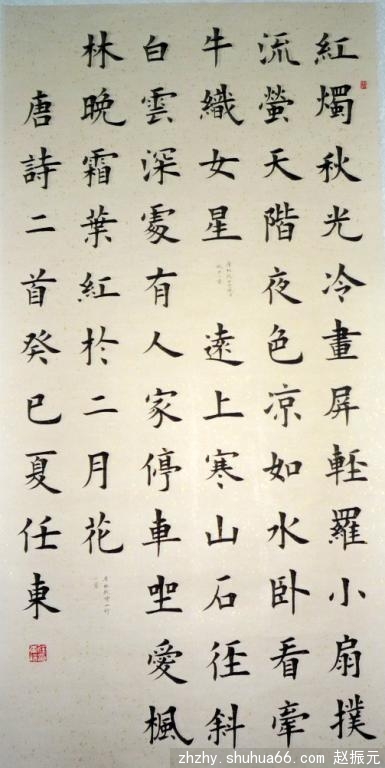 紅燭秋光冷畫屏輕羅小扇撲
流螢天階夜色凉如水卧看牽
牛織女星
遠上寒山石徑斜
白雲深處有人家停車坐愛楓
林晚霜葉紅於二月花
唐詩二首癸巳夏任東
zhzhy.shuhua66.com 赵振元